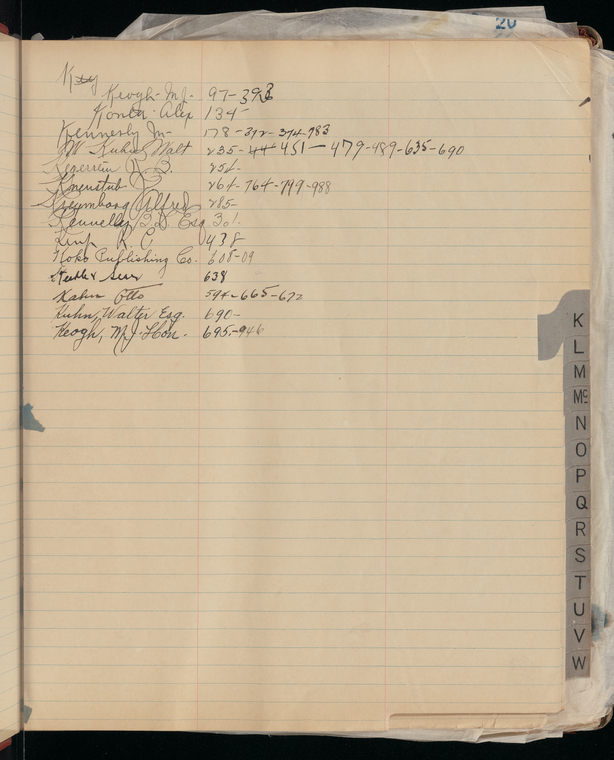 20
Keogh - M.J. - 97 - 393
Konta - Alex 134 -
Kennerly Jn - 178 - 372 - 374 - 983
Kuhn, Walt 235 - 44 - 451 - 479 - 489 - 635 - 690
B. 254 -
264 - 764 - 799 - 988
Kreymborg Alfred 285 -
Kennelly, Esq 301.
K. C. 438
Koko Publishing Co. 608 - 09
638
Kahn Otto 594 - 665 - 672
Kuhn, Walter Esq. 690 -
Keogh, M.J. Hon. - 695 - 946
K
L
M
Mc
N
O
P
Q
R
S
T
U
V
W